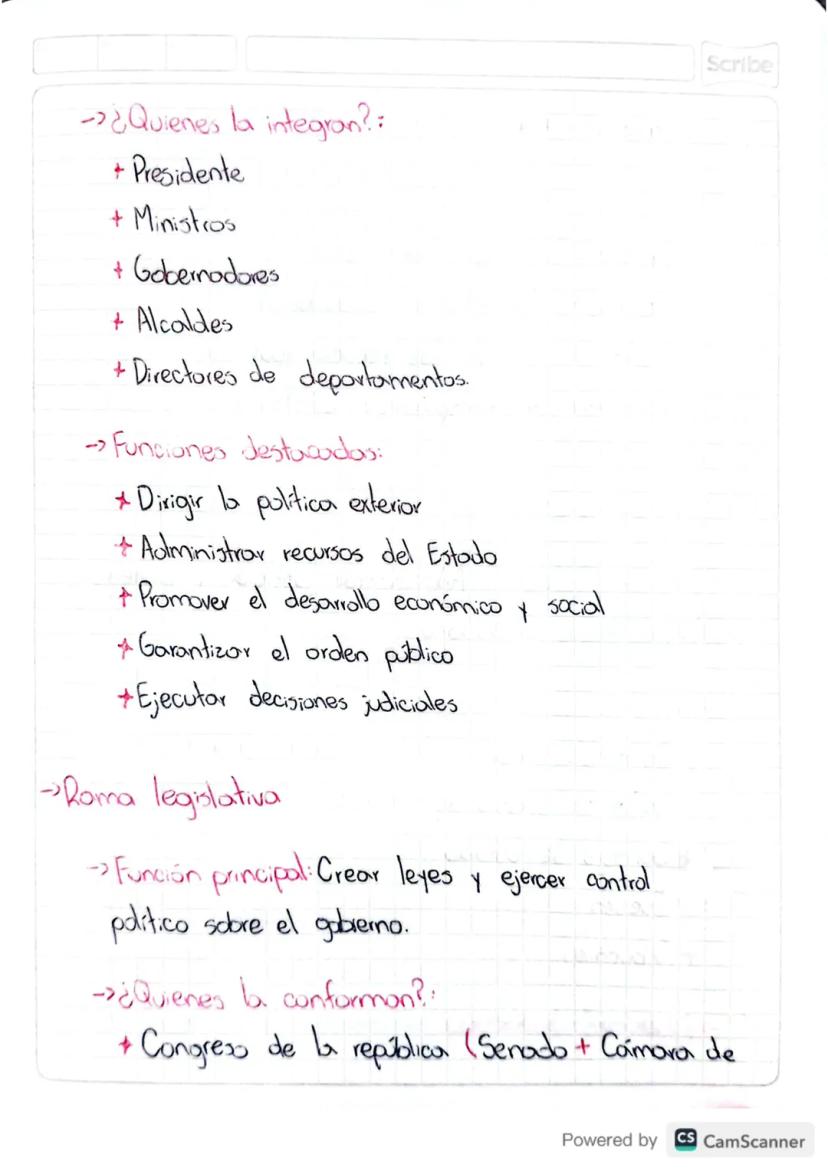 Scribe
→¿Quienes la integran?:
+ Presidente
+ Ministros
+ Gobernadores
+ Alcaldes
+ Directores de departamentos.
→ Funciones destacadas:
+ Dirigir la política exterior
+ Administrar recursos del Estado
+ Promover el desarrollo económico y social
+ Garantizar el orden público
+ Ejecutar decisiones judiciales
→ Rama legislativa
→ Función principal: Crear leyes y ejercer control
político sobre el gobierno.
→¿Quienes la conforman?:
+ Congreso de la república (Senado + Cámara de
Powered by CS CamScanner